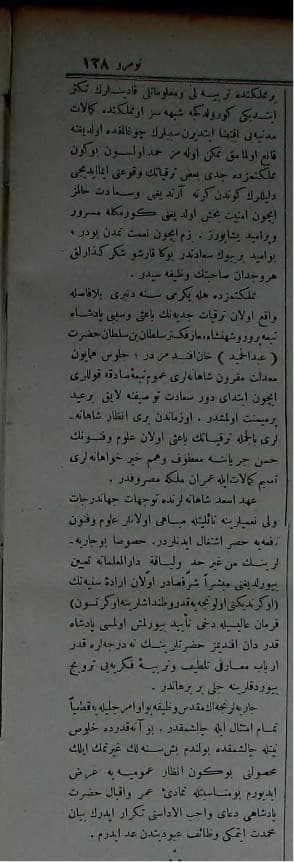 نومرو ١٣٨
بر مملكتده تربيه لى ومعلوماتلى قادينلرك تكثر
ايتديكى كورولدكجه شبهه سز او مملكتده كالات
مدنيه يى اقتضا ايتديرن سبلرك چوغالمقده اولديغنه
قانع اولمامق ممكن اوله مز حمد اولسون بوكون
مملكتمزده جدى بعض ترقياتك وقوعنى ايما ايديجى
دليللرك كوندن كونه آرتديغنى وسعادت حالمز
ايچون امنيت بخش اولديغنى كورمكله مسرور
وبراميد يشايورز . بزم ايچون نعمت تمدن بودر ؛
بو اميد بر بيوك سعادتدر بوكا قارشو شكر كذارلق
هر وجدان صاحبنك وظيفه سيدر .
مملكتمزده هله يكرمى سنه دنبرى بلافاصله
واقع اولان ترقيات جديه نك باعثى وسببى پادشاه
تبعه پرور وشهنشاه معارفكستر سلطان بن سلطان حضرت
(عبدالحميد) خان افندمزدر ؛ جلوس همايون
معدلت مقرون شاهانه لرى عموم تبعهٔ صادقه قوللرى
ايچون ابتداى دور سعادت توصيفنه لايق بر عيد
پر ميمنت اولمشدر . اوزماندن برى انظار شاهانه ـ
لرى بالجمله ترقياتك باعثى اولان علوم وفنونك
حسن جرياننه معطوف وهمم خير خواهانه لرى
تعميم كالات ايله عمران ملكه مصروفدر .
عهد اسعد شاهانه لرنده توجهات جهاندرجات
ولى نعميلرينه نائليتله مباهى اولانلر علوم وفنون
نافعه يه حصر اشتغال ايدنلردر . خصوصا بو جاريه ـ
لرينك من غير حد ولياقة دارالمعلماته تعيين
بيورلديغنى مبشراً شرفصادر اولان ارادهٔ سنيه نك
(اوكرنديكنى اولنجه يه قدر وطنداشلرينه اوكرتسون)
فرمان عاليسيله دخى تأييد بيورلمش اولمسى پادشاه
قدر دان افنديمز حضرتلرينك نه درجه لره قدر
ارباب معارفى تلطيف وتربيهٔ فكريه يى ترويج
بيوردقلرينه جلى بر برهاندر .
جاريه لرنجه اك مقدس وظيفه بو اوامر جليله يه قطعياً
تمام امتثال ايله چالشمقدر . بو آنه قدر ده خلوص
نيتله چالشمقده بولندم بش سنه لك غيرتمك ايلك
محصولنى بوكون انظار عموميه يه عرض
ايديورم بومناسبتله تمادىء عمر واقبال حضرت
پادشاهى دعاى واجب الاداسنى تكرار ايدرك بيان
محمدت ايتمكى وظائف عبوديتدن عد ايدرم .